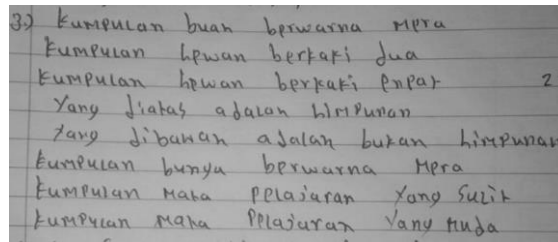 3.) kumpulan buah berwarna mera
kumpulan hewan berkaki dua
kumpulan hewan berkaki enpat 2
yang diatas adalah himpunan
yang dibawah adalah bukan himpunan
kumpulan bunga berwarna mera
kumpulan mata pelajaran yang sulit
kumpulan mata pelajaran yang muda